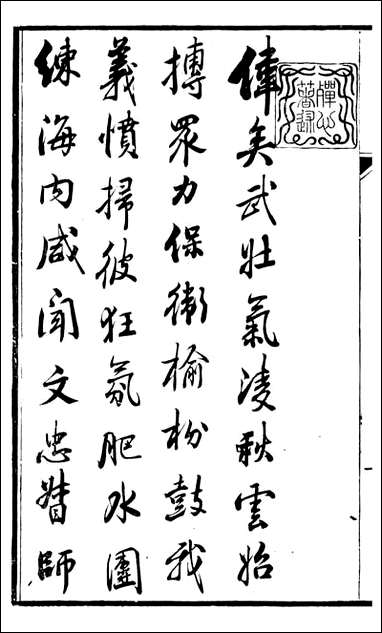 偉矣武壯氣凌秋雲始
摶眾力保衛榆枌鼓我
義憤掃彼狂氛肥水團
練海內咸聞文忠督師